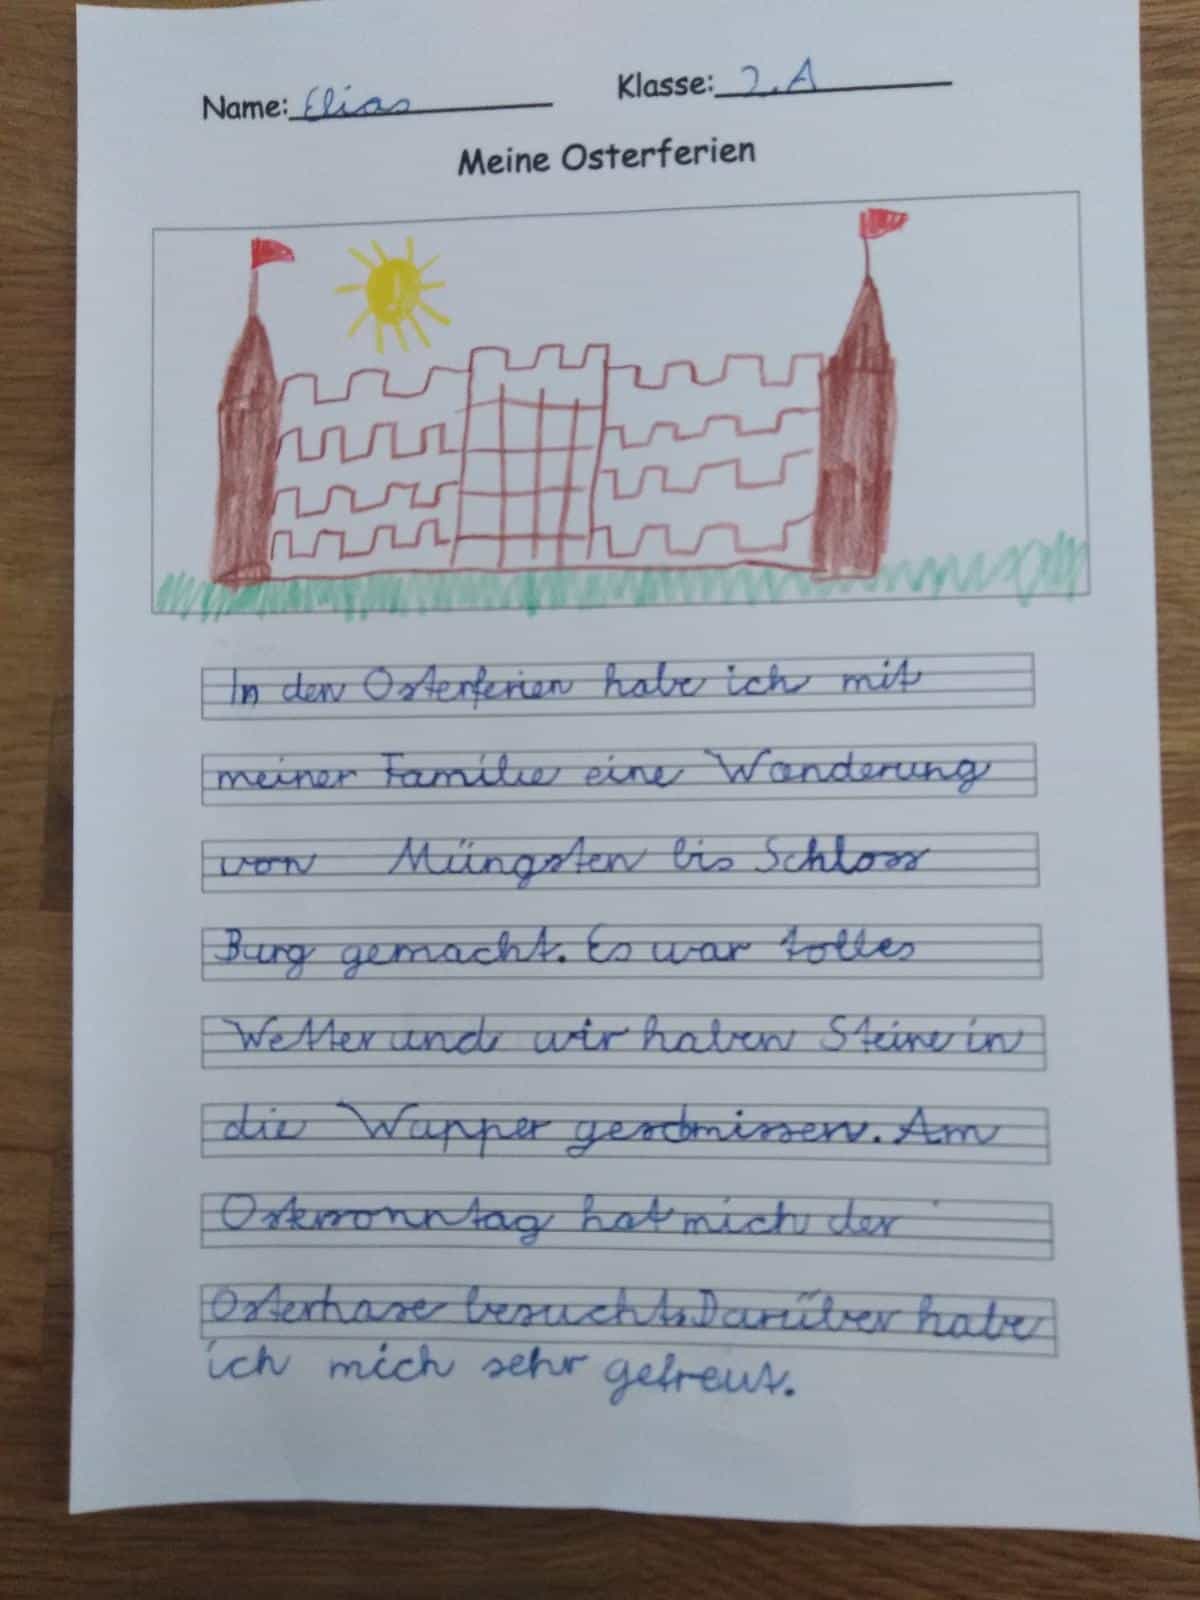 Name: Elias Klasse: 2.A
Meine Osterferien
In den Osterferien habe ich mit
meiner Familie eine Wanderung
von Müngsten bis Schloss
Burg gemacht. Es war tolles
Wetter und wir haben Steine in
die Wupper geschmissen. Am
Ostersonntag hat mich der
Osterhase besucht. Darüber habe
ich mich sehr gefreut.